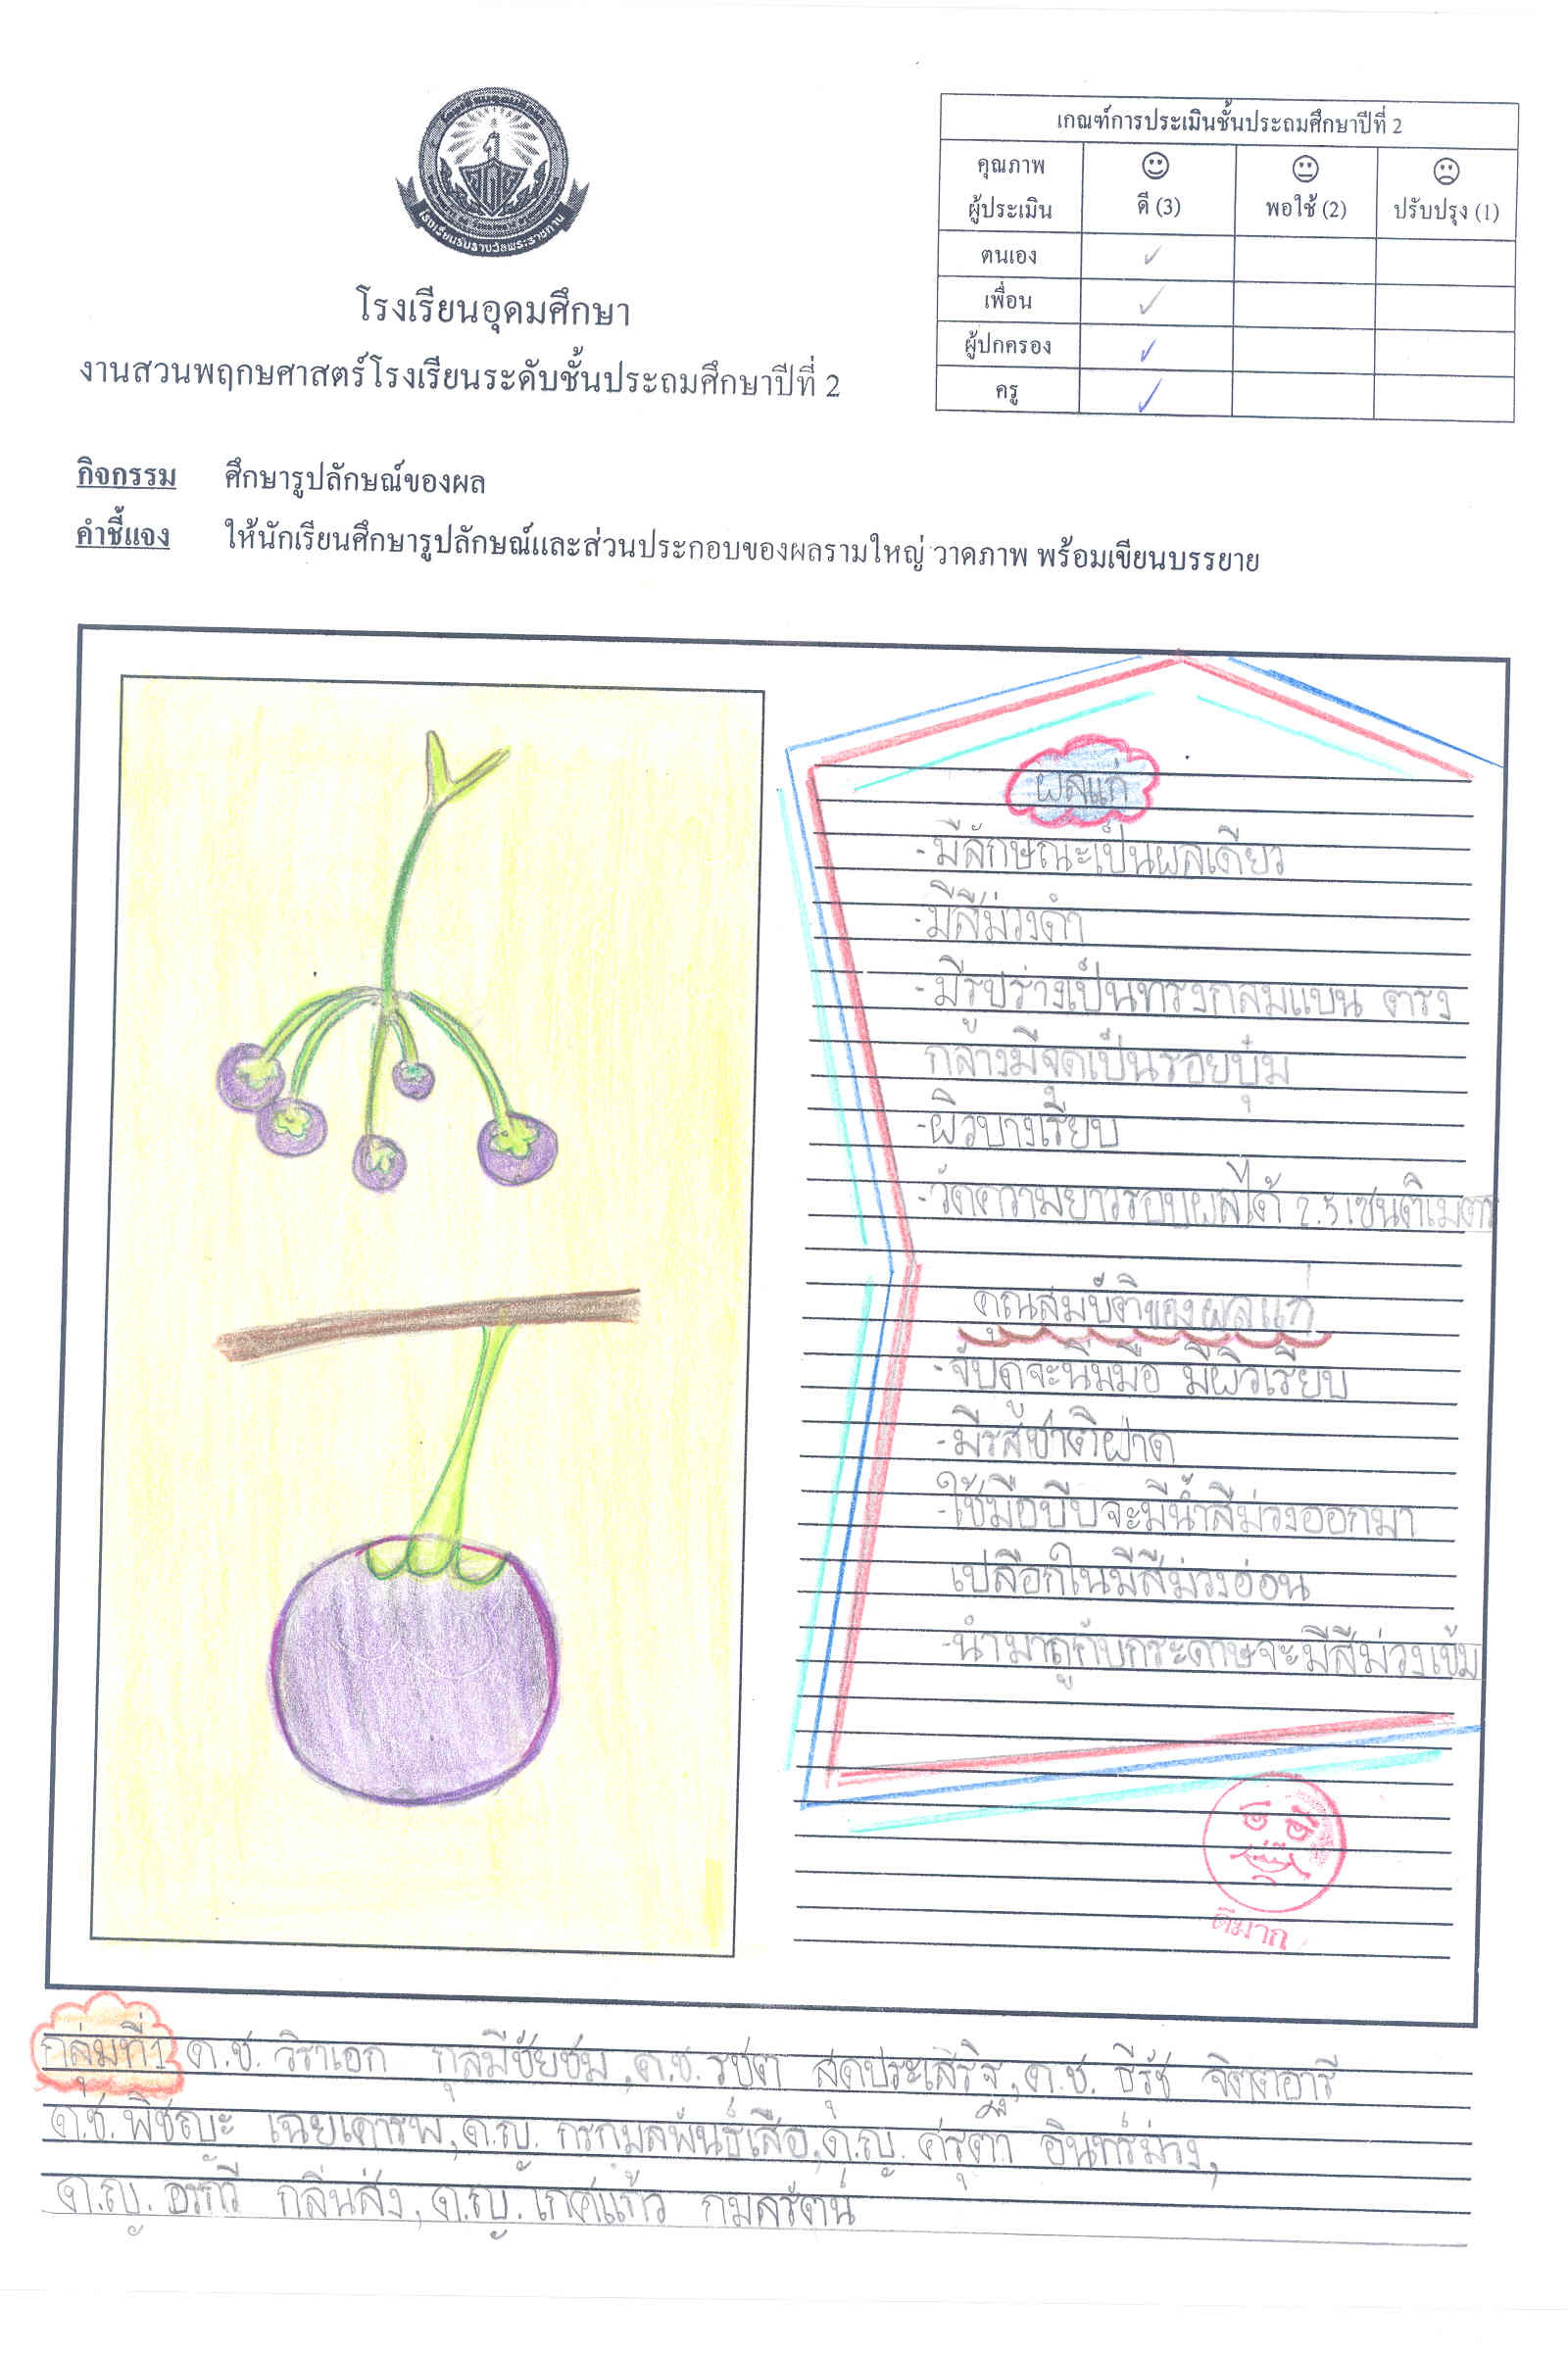 โรงเรียนรับรางวัลพระราชทาน
โรงเรียนอุดมศึกษา
งานสวนพฤกษศาสตร์โรงเรียนระดับชั้นประถมศึกษาปีที่ 2
เกณฑ์การประเมินชั้นประถมศึกษาปีที่ 2
คุณภาพ
ผู้ประเมิน ดี (3) พอใช้ (2) ปรับปรุง (1)
ตนเอง
เพื่อน
ผู้ปกครอง
ครู
กิจกรรม ศึกษารูปลักษณ์ของผล
คำชี้แจง ให้นักเรียนศึกษารูปลักษณ์และส่วนประกอบของผลรามใหญ่ วาดภาพ พร้อมเขียนบรรยาย
ผลแก่
-มีลักษณะเป็นผลเดียว
-มีสีม่วงดำ
-มีรูปร่างเป็นทรงกลมแบน ตรง
กลางมีจุดเป็นรอยบุ๋ม
-ผิวบางเรียบ
-วัดความยาวรอบผลได้ 2.5 เซนติเมตร
คุณสมบัติของผลแก่
-จับดูจะนิ่มมือ มีผิวเรียบ
-มีรสชาติฝาด
-ใช้มือบีบจะมีน้ำสีม่วงออกมา
เปลือกในมีสีม่วงอ่อน
-นำมาถูกับกระดาษจะมีสีม่วงเข้ม
ดีมาก
กลุ่มที่1 ด.ช. วิราเอก กุลมีชัยชม, ด.ช. รชต สุดประเสริฐ, ด.ช. ธีรัช จิตตอารี
ด.ช. พิชญะ เฉยเคารพ, ด.ญ. กรกมลพันธ์เสือ, ด.ญ. ศรุตา อินทร์ม่วง,
ด.ญ. กลิ่นส่ง, ด.ญ. เกศแก้ว กมลรัตน์